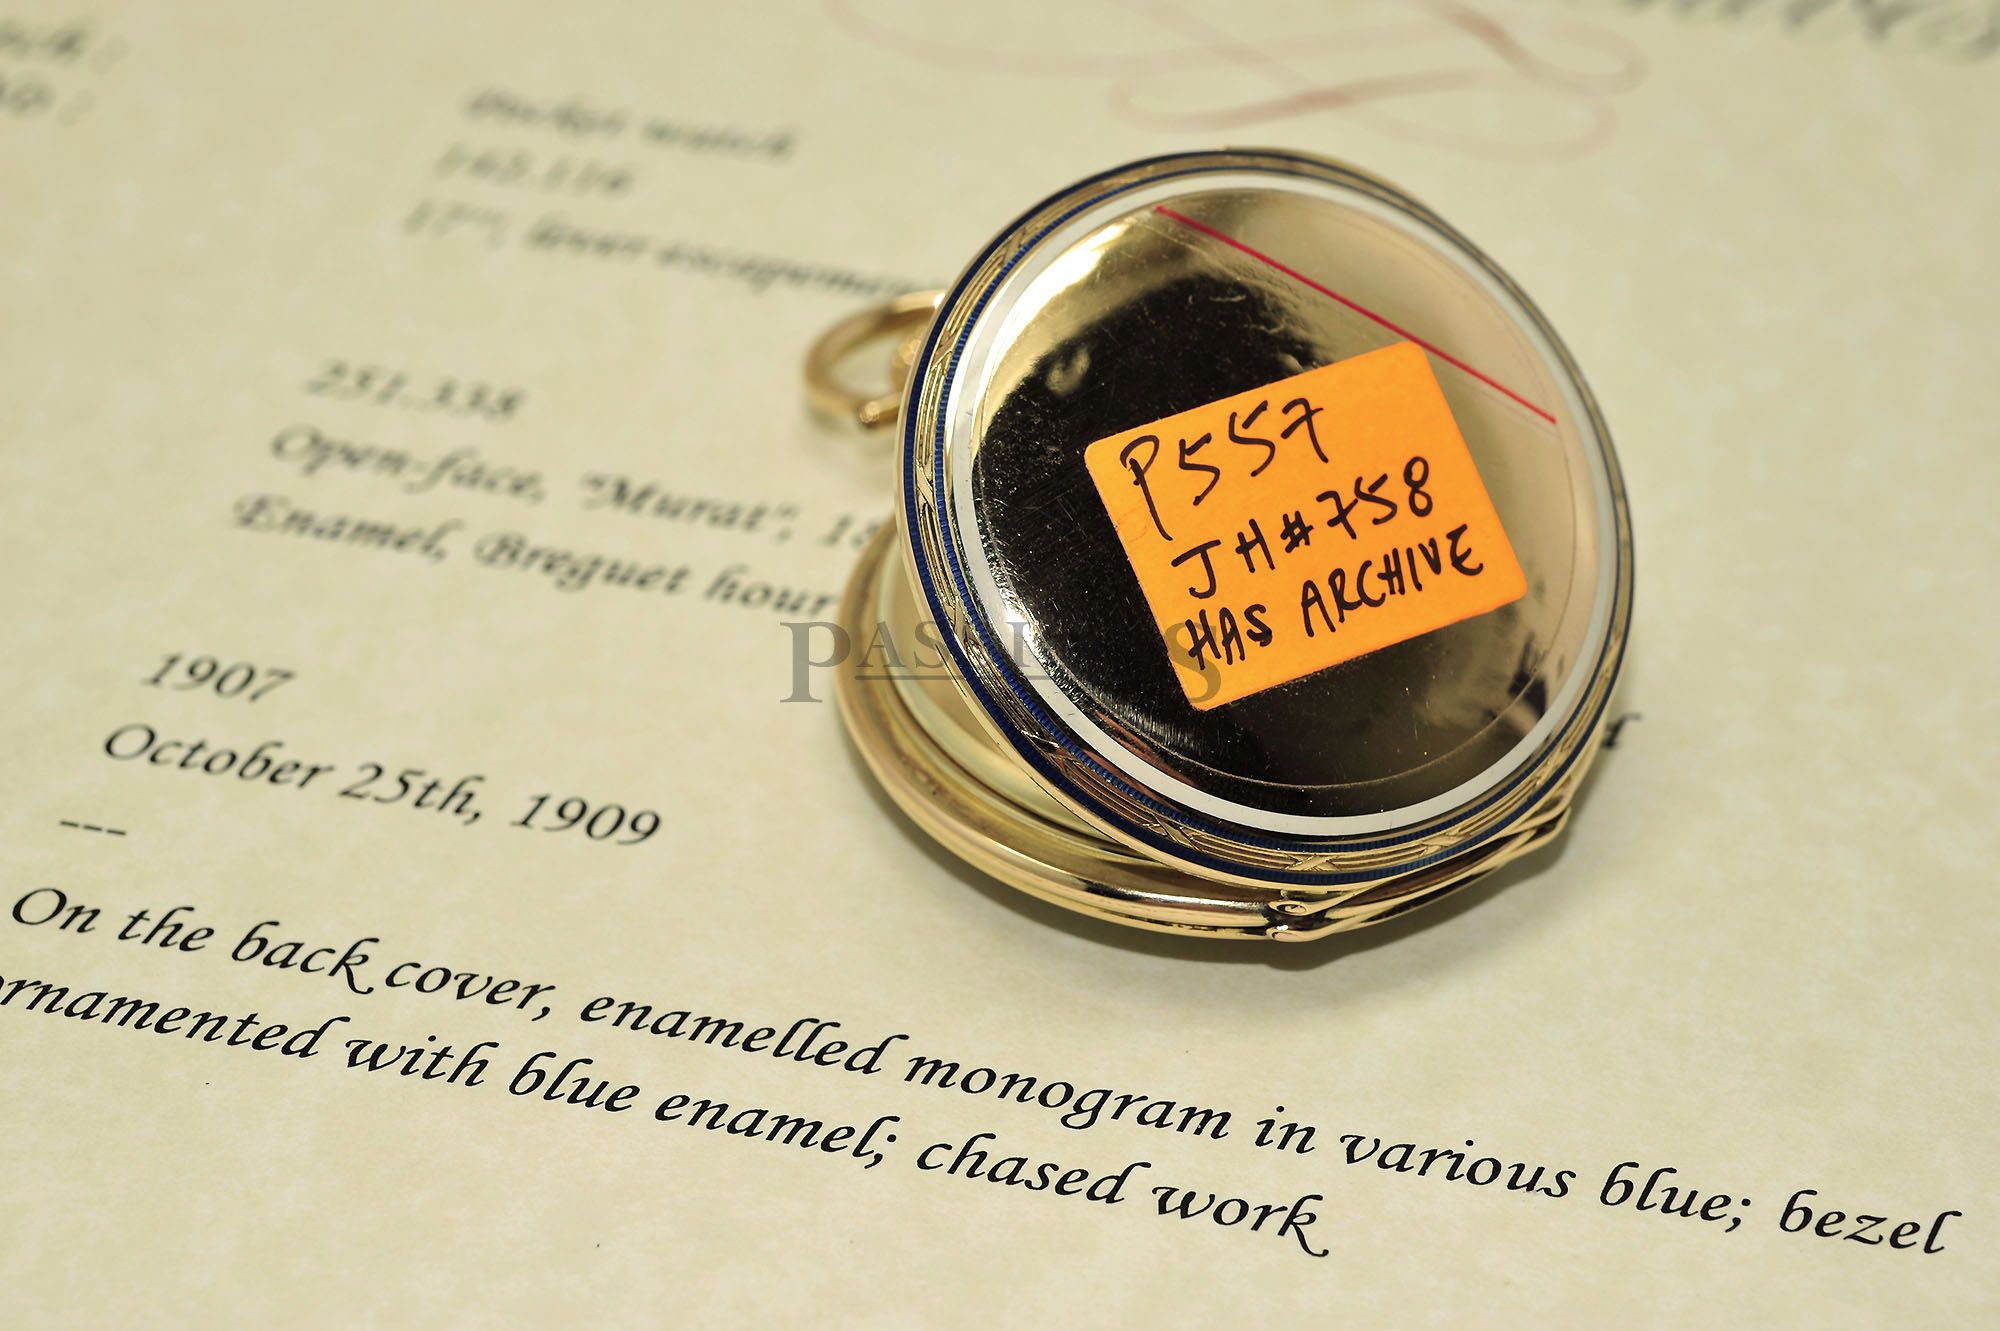 Pocket watch
17''', lever escapement
251.338
Open-face, "Murat",
Enamel, Breguet hour
1907
October 25th, 1909
---
On the back cover, enamelled monogram in various blue; bezel
ornamented with blue enamel; chased work
P557
JH#758
HAS ARCHIVE